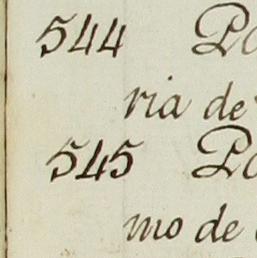 544 Po
ria de
545 Po
mo de